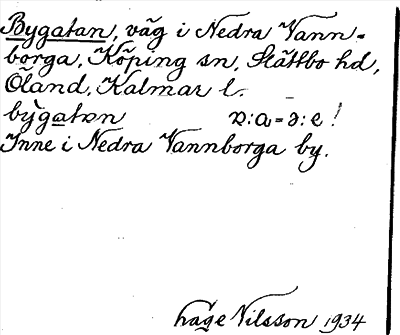 Bygatan, väg i Nedra Vann-
borga, Köping sn, Slättbo hd,
Öland, Kalmar l.
by̆gatɒn ɒ:a=ɔ:e!
Inne i Nedra Vannborga by.
Nilsson 1934